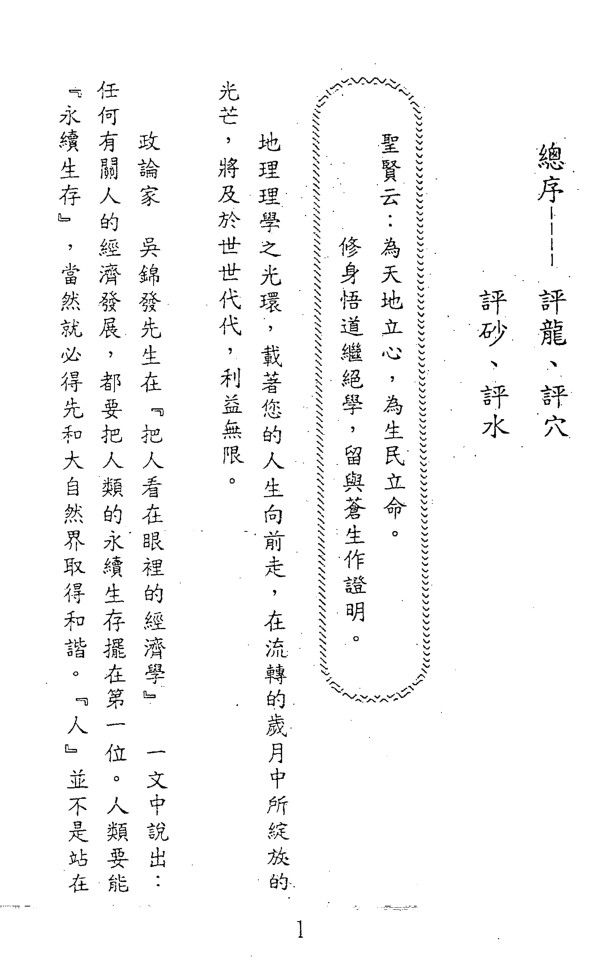 總序————評龍、評穴
評砂、評水
聖賢云：為天地立心，為生民立命。
修身悟道繼絕學，留與蒼生作證明。
地理理學之光環，載著您的人生向前走，在流轉的歲月中所綻放的
光芒，將及於世世代代，利益無限。
政論家　吳錦發先生在『把人看在眼裡的經濟學』　一文中說出：
任何有關人的經濟發展，都要把人類的永續生存擺在第一位。人類要能
『永續生存』，當然就必得先和大自然界取得和諧。『人』並不是站在
1